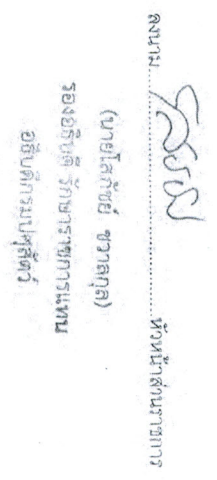 ลงนาม........................................หัวหน้าส่วนราชการ
(นายโสภัชย์ ชวาลกุล)
รองอธิบดี รักษาราชการแทน
อธิบดีกรมปศุสัตว์